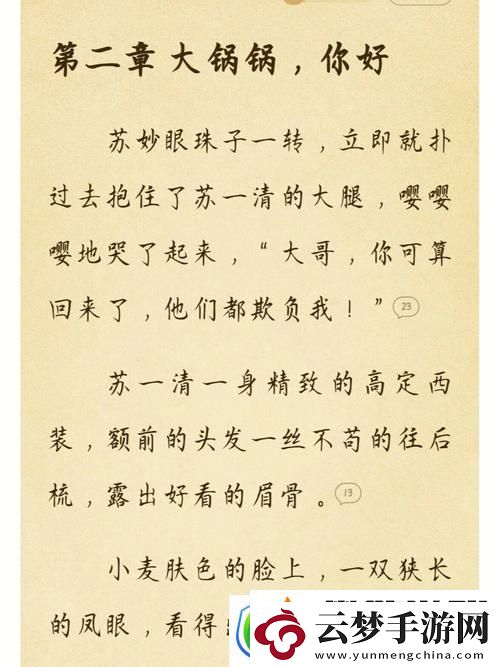 第二章 大锅锅，你好
苏妙眼珠子一转，立即就扑
过去抱住了苏一清的大腿，嘤嘤
嘤地哭了起来，“大哥，你可算
回来了，他们都欺负我！”23
苏一清一身精致的高定西
装，额前的头发一丝不苟的往后
梳，露出好看的眉骨。13
小麦肤色的脸上，一双狭长
的凤眼，看得
云梦手游网
www.yunmengchina.com